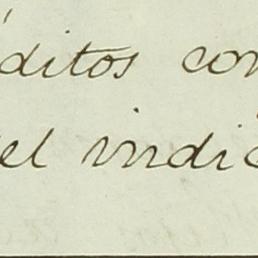 éditos con
el indic